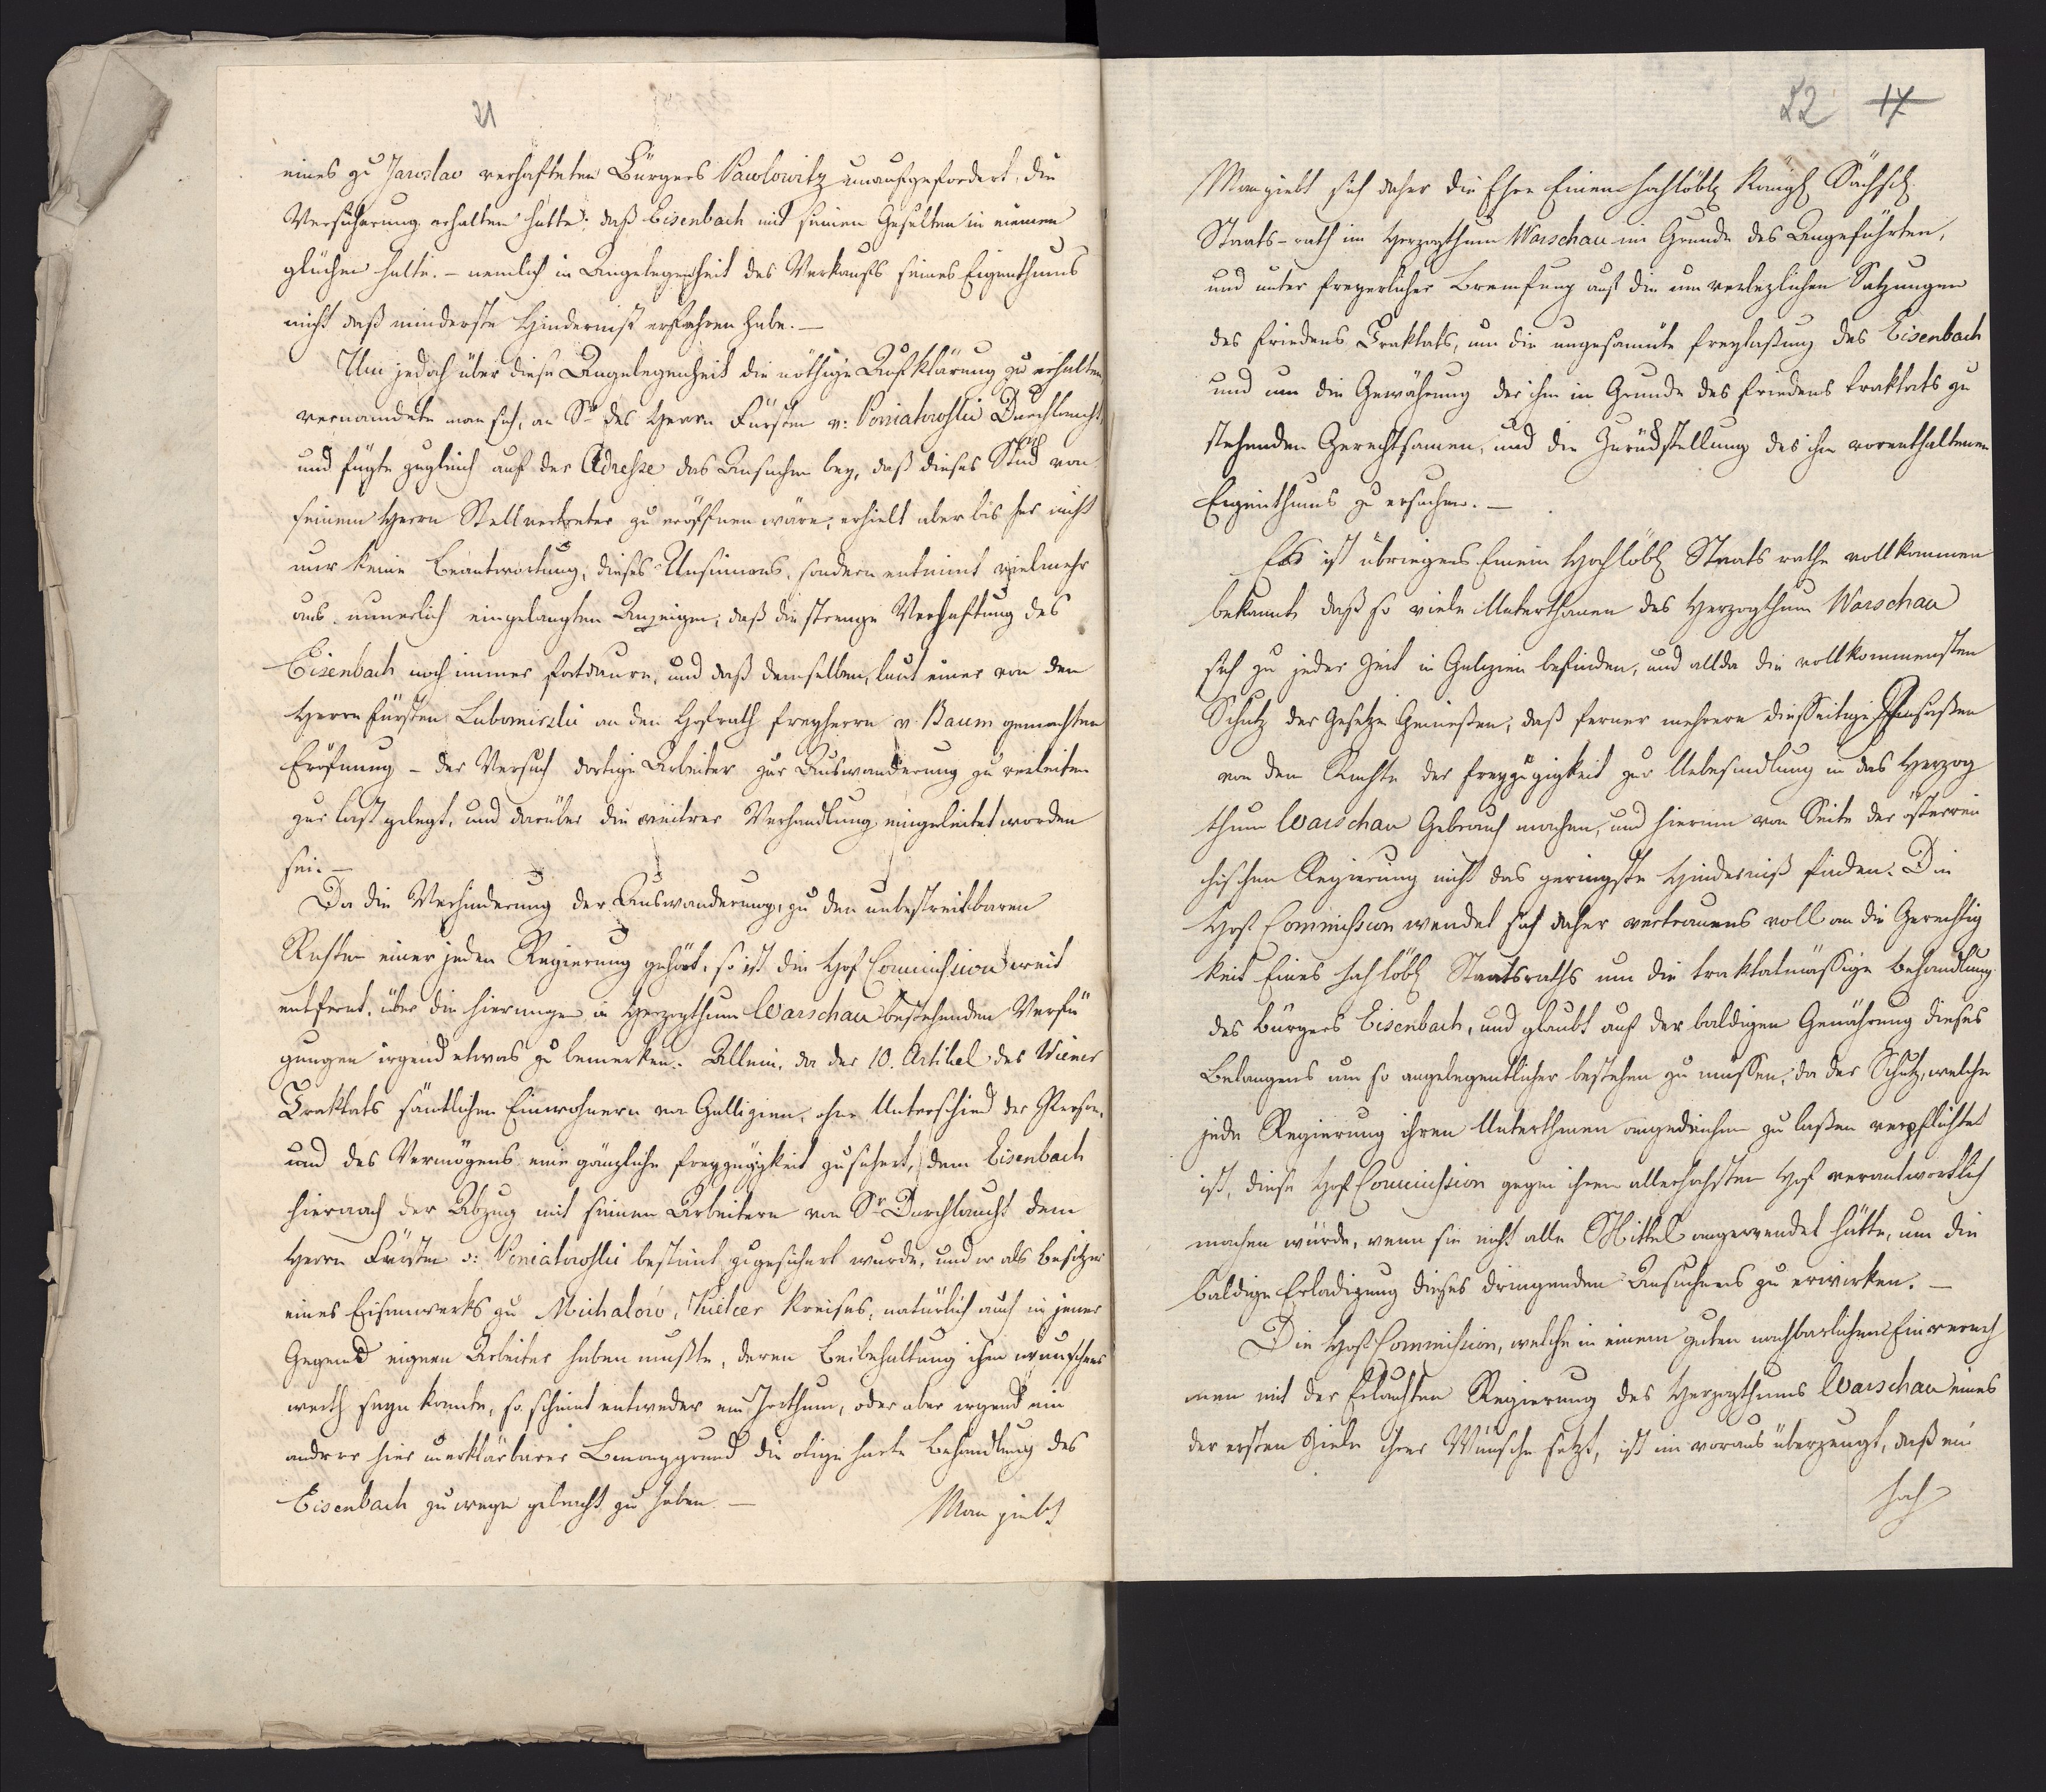 21
eines zu Jaroslav verhafteten Bürgers Pawlowitz unaufgefordert, die
Versicherung erhalten hätte: daß Eisenbach mit seinen Gesellen in einem
gleichen Falle. – nemlich in Angelegenheit des Verkaufs seines Eigenthums
nicht daß minderste Hinderniß erfahren habe. –
Um jedoch über diese Angelegenheit die nöthige Aufklärung zu erhalten,
verwandete man sich, an Sr des Herrn Fürsten v: Poniatowski Durchlaucht,
und fügte zugleich auf der Adresse das Ansuchen bey, daß dieses Stück von
seinem Herrn Stellvertreter zu eröffnen wäre, erhielt aber bis her nicht
nur keine Beantwortung, dieses Ansinnens, sondern entnimt vielmehr
aus neuerlich eingelangten Anzeigen, daß die strenge Verhaftung des
Eisenbach noch immer fortdaure, und daß demselben, laut einer von dem
Herrn Fürsten Lubomirski an den Hofrath Freyherrn v. Baum gemachten
Eröfnung – der Versuch dortige Arbeiter zur Auswanderung zu verleiten
zur last gelegt, und darüber die weitere Verhandlung eingeleitet worden
sei. –
Da die Verhinderung der Auswanderung, zu den unbestreitbaren
Rechten einer jeden Regierung gehört, so ist die Hof Commission weit
entfernt, über die hierwegen in Herzogthum Warschau bestehenden Verfü
gungen irgend etwas zu bemerken. Allein, da der 10. Artikel des Wiener
Traktats säntlichen Einwohnern von Gallizien, ohne Unterschied der Person,
und des Vermögens eine gänzliche Freyzügigkeit zusichert, dem Eisenbach
hiernach der Abzug mit seinen Arbeitern von Sr Durchlaucht dem
Herrn Fürsten v: Poniatowski bestimt zugesichert wurde, und er als Besitzer
eines Eisenwerks zu Michalow, Kielcer Kreises, natürlich auch in jener
Gegend eigene Arbeiter haben mußte, deren Beibehaltung ihm wünschens
werth seyn konnte, so scheint entweder ein Irrthum, oder aber irgend ein
andrer hier unerklärbarer Beweggrund die obige harte Behandlung des
Eisenbach zuwege gebracht zu haben. –
Man giebt
22 17
Man giebt sich daher die Ehre Einen Hochlöbl Königl Sächsch.
Staats-rath im Herzogthum Warschau im Grunde des Angeführten,
und unter feyerlicher Berufung auf die unverlezlichen Satzungen
des Friedens Traktats, um die ungesäumte Freylaßung des Eisenbach
und um die Gewährung der ihm in Grunde des Friedens traktats zu
stehenden Gerechtsamen, und die Zurückstellung des ihm vorenthaltenen
Eigenthums zu ersuchen. –
Es ist übriegens Einem Hochlöbl Staats rathe vollkommen
bekannt, daß so viele Unterthanen des Herzogthum Warschau
sich zu jeder Zeit in Galizien befinden, und allda die vollkommensten
Schutz der Gesetze Genießen, daß ferner mehrere diesseitige Insaßen
von dem Rechte der Freyzügigkeit zur Uebesiedlung in das Herzog
thum Warschau Gebrauch machen, und hierinn von Seite der österrei
chischen Regierung nicht das geringste Hinderniß finden. Die
Hof Commission wendet sich daher vertrauens voll an die Gerechtig
keit Eines hochlöbl Staatsraths um die traktatmässige Behandlung
des Bürgers Eisenbach, und glaubt auf der baldigen Gewährung dieses
Belangens um so angelegentlicher bestehen zu müssen, da der Schutz, welche
jede Regierung ihren Unterthanen angedeihen zu laßen verpflichtet
ist, diese Hof Commission gegen ihren allerhöchsten Hof verantwortlich
machen würde, wenn sie nicht alle Mittel angewendet hätte, um die
baldige Erledigung dieses dringenden Ansuchens zu erwirken. –
Die Hof Commission, welche in einem guten nachbarlichen Einverneh
men mit der Erlauchten Regierung des Herzogthums Warschau eines
der ersten Ziele ihrer Wünsche setzt, ist im voraus überzeugt, daß ein
hoch